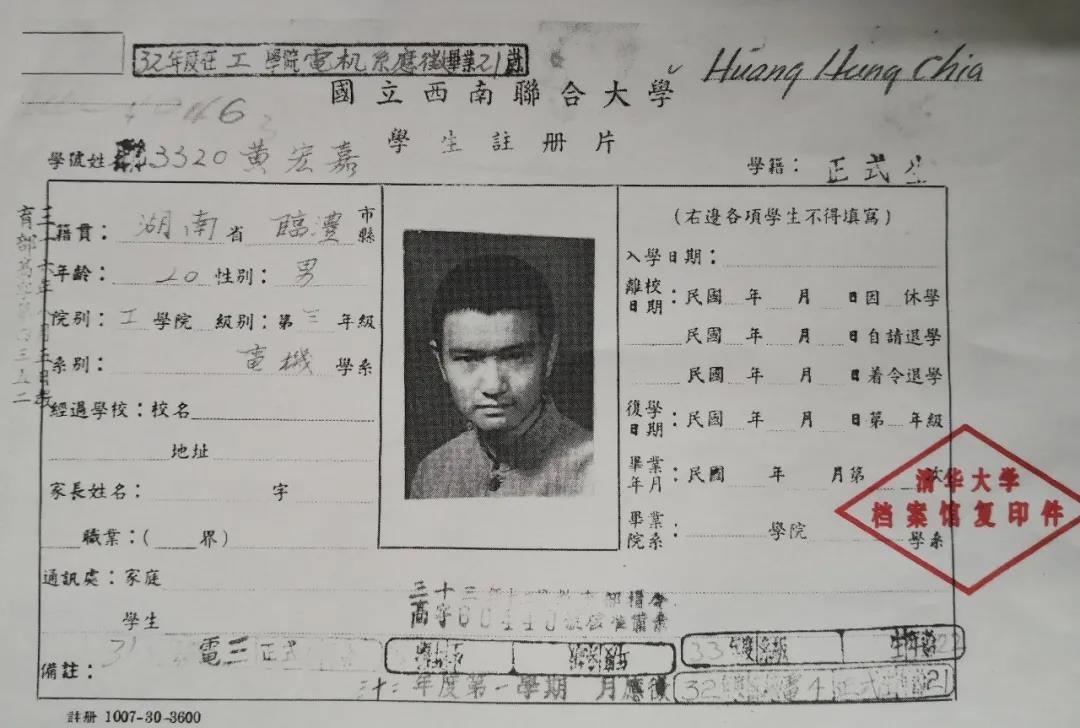 32年度在工學院電机系應徵畢業21歲
Huang Hung Chia
國立西南聯合大學
46
學生註册片
學號姓名 3320 黃宏嘉
學籍：正式生
籍貫：湖南省臨澧市縣
年齡：20 性別：男
院別：工學院 級別：第三年級
系別：電機學系
經過學校：校名
地址
家長姓名： 字
職業：( 界)
通訊處：家庭
學生
備註：31 電三正式
(右邊各項學生不得填寫)
入學日期：
離校日期：民國 年 月 日因 休學
民國 年 月 日自請退學
民國 年 月 日着令退學
復學日期：民國 年 月 日第 年級
畢業年月：民國 年 月第 次
畢業院系： 學院 學系
清华大学
档案馆复印件
三十三
高字60440號
33年度 級
年度第一學期 月應徵
32 4正式 21
註册 1007-30-3600